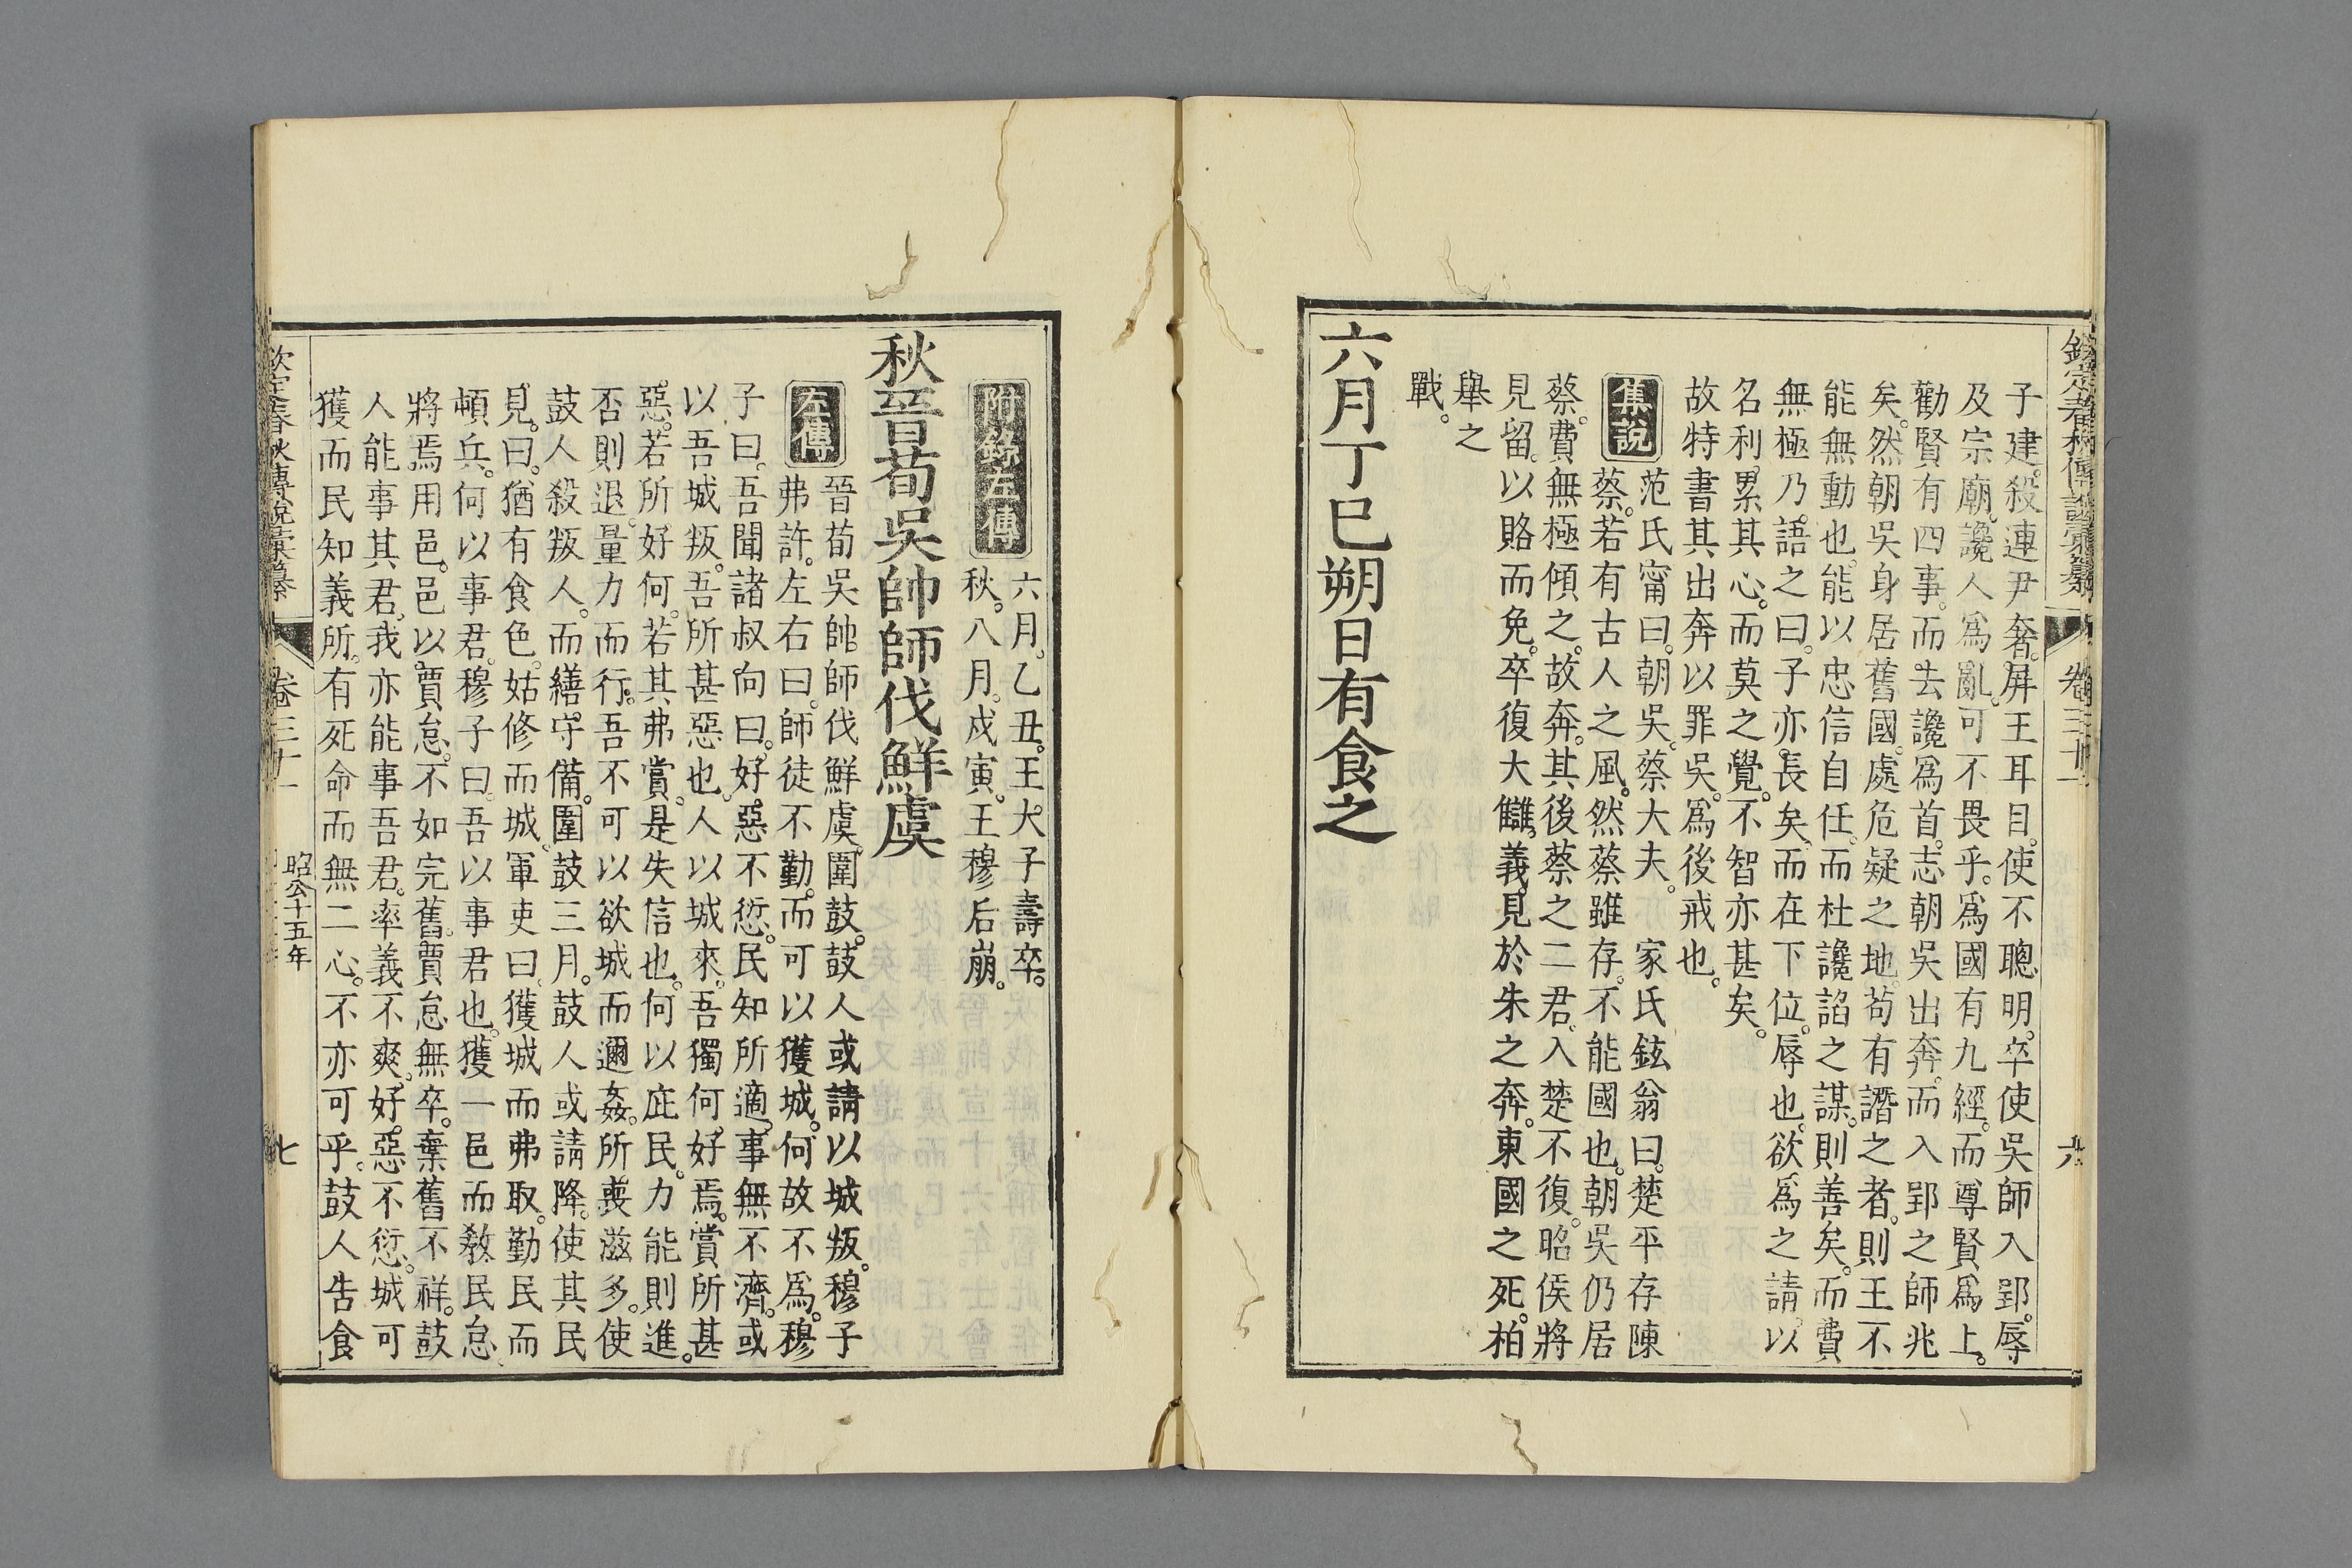 欽定春秋傳說彙纂 卷三十一 六
子建殺連尹奢屏王耳目使不聰明卒使吳師入郢辱
及宗廟讒人爲亂可不畏乎爲國有九經而尊賢爲上
勸賢有四事而去讒爲首志朝吳出奔而入郢之師兆
矣然朝吳身居舊國處危疑之地苟有譖之者則王不
能無動也能以忠信自任而杜讒諂之謀則善矣而費
無極乃語之曰子亦長矣而在下位辱也欲爲之請以
名利累其心而莫之覺不智亦甚矣
故特書其出奔以罪吳爲後戒也
集說
范氏甯曰朝吳蔡大夫 家氏鉉翁曰楚平存陳
蔡若有古人之風然蔡雖存不能國也朝吳仍居
蔡費無極傾之故奔其後蔡之二君入楚不復昭侯將
見留以賂而免卒復大讎義見於朱之奔東國之死柏
舉之
戰
六月丁巳朔日有食之
附錄左傳
六月乙丑王大子壽卒
秋八月戍寅王穆后崩
秋晉荀吳帥師伐鮮虞
左傳
晉荀吳帥師伐鮮虞圍鼓鼓人或請以城叛穆子
弗許左右曰師徒不勤而可以獲城何故不爲穆
子曰吾聞諸叔向曰好惡不愆民知所適事無不濟或
以吾城叛吾所甚惡也人以城來吾獨何好焉賞所甚
惡若所好何若其弗賞是失信也何以庇民力能則進
否則退量力而行吾不可以欲城而邇姦所喪滋多使
鼓人殺叛人而繕守備圍鼓三月鼓人或請降使其民
見曰猶有食色姑修而城軍吏曰獲城而弗取勤民而
頓兵何以事君穆子曰吾以事君也獲一邑而教民怠
將焉用邑邑以賈怠不如完舊賈怠無卒棄舊不祥鼓
人能事其君我亦能事吾君率義不爽好惡不愆城可
獲而民知義所有死命而無二心不亦可乎鼓人告食
欽定春秋傳說彙纂 卷三十一 昭公十五年 七